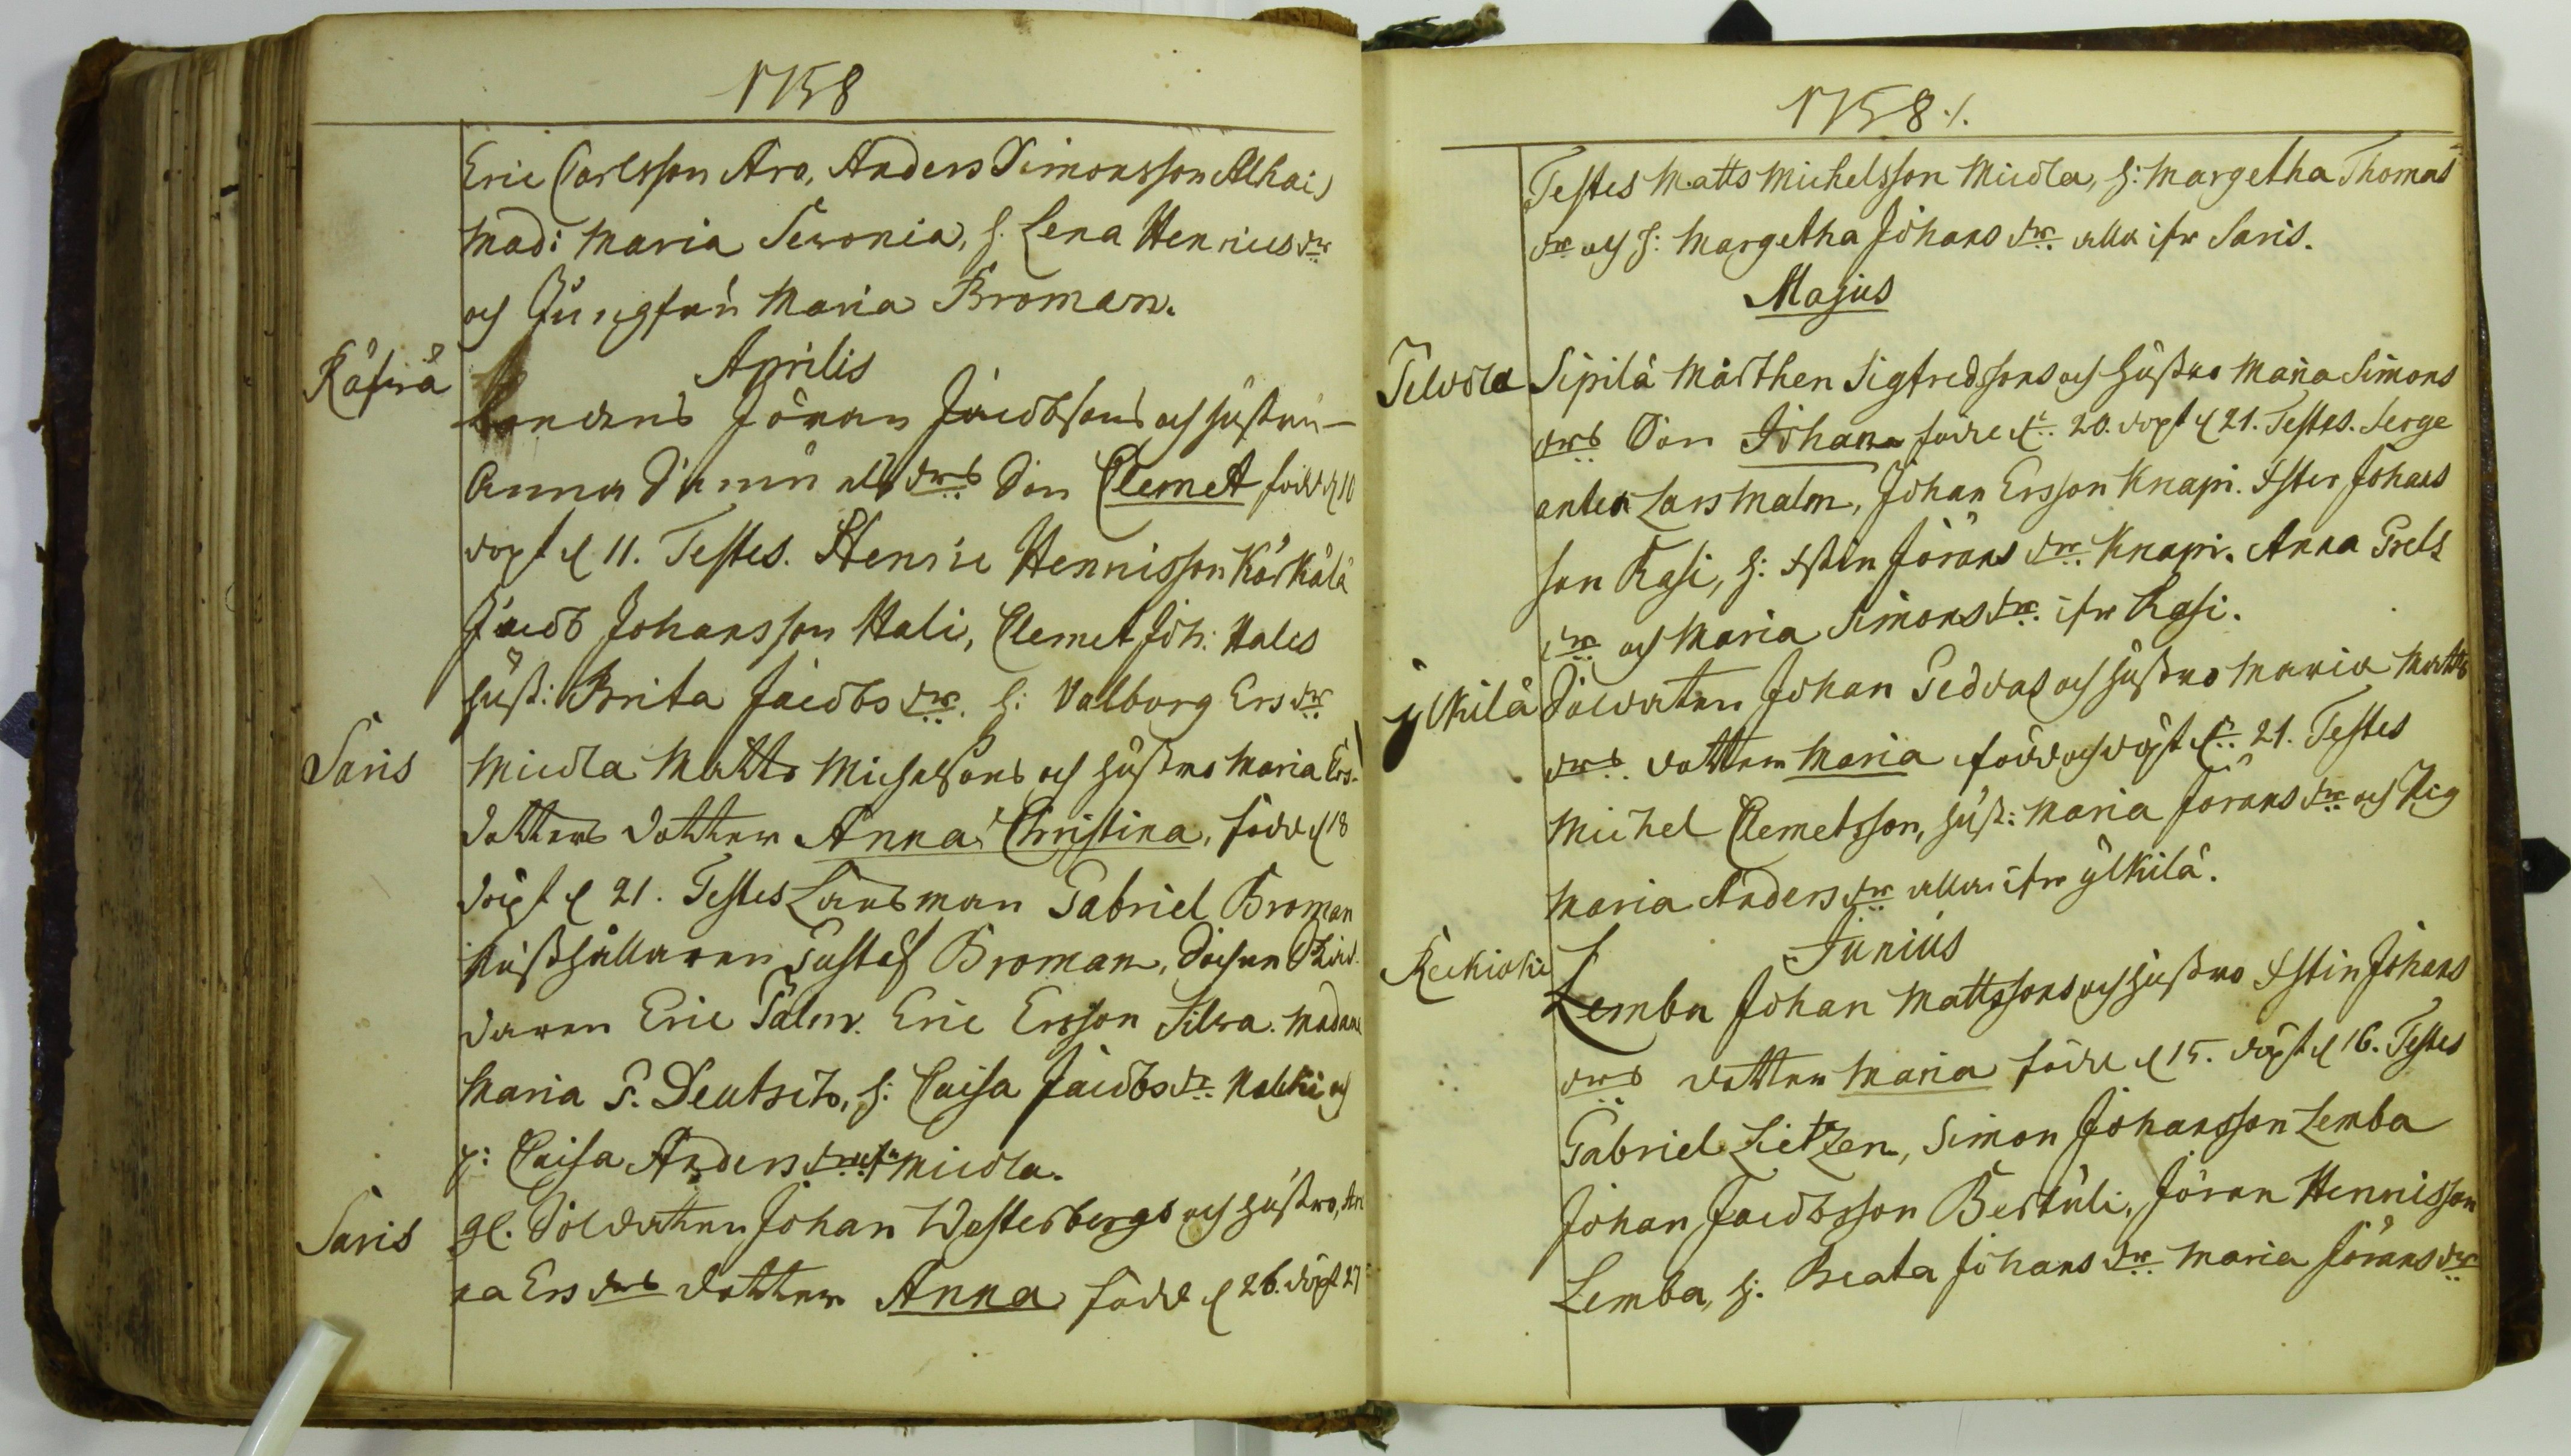 1758
Eric Carlsson Aro, Anders Simonsson Alhais
Mad: Maria Sewonia, h. Lena Henrics dr
och Jungfru Maria Broman.
Aprilis
Käfrä
bondens Jöran Jacobsons och hustru
Anna drs Son Clemet född d 10
döpt d 11. Testes. Henric Hennisson Kärkälä
Jacob Johansson Hali, Clemet Joh: Hales
hust: Brita Jacobs dr. h: Valborg Ers dr
Saris
Micola Matts Michelsons och hustro Maria Ers-
dotters dotter Anna Christina, född d 18
döpt d 21. Testes Länsman Gabriel Broman
Hushållaren Gustaf Broman,
Eric Palm. Eric Ersson Silva. Madame
Maria S. Deutsch, h: Caisa Jacobs dr. Kalcki och
p: Caisa Anders dr Micola.
Saris
gl. Soldaten Johan Westerbergs och hustro, An
na Ers drs dotter Anna född d 26. döpt 27
1758 ./.
Testes Matts Michelsson Micola, h: Margetha Thomas
dr och h: Margetha Johans dr. alla ifr Saris.
Majus
Telvola
Sipilä Mårthen Sigfredssons och hustro Maria Simons
drs Son Johan född d. 20. döpt d 21. Testes. Serge
anten Lars Malm, Johan Ersson Knapi. Ester Johans
son Rasi, h: Estin Jörans dr. Knapi. Anna Grels
dr och Maria Simons dr. ifr Rasi.
ylkilä
Soldaten Johan Pedvas och hustro Maria Matts
drs dotter Maria född och döpt d. 21. Testes
Michel Clemetsson, hust: Maria Jörans dr och Pig
Maria Anders dr alla ifr ylkilä.
Junius
Reckioki
Lemba Johan Mattssons och hustro Estin Johans
drs dotter Maria född d 15. döpt d 16. Testes
Gabriel Lietzen, Simon Johansson Lemba
Johan Jacobsson Bertuli, Jöran Hennisson
Lemba, h: Beata Johans dr Maria Jörans dr